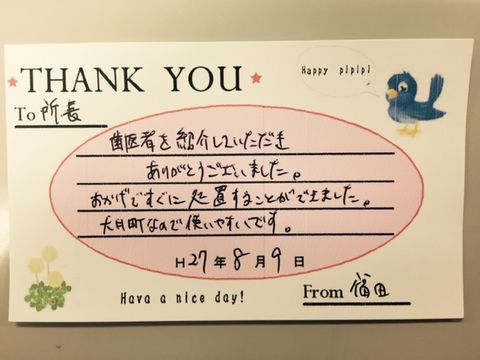 THANK YOU
Happy pipipi
To 所長
歯医者を紹介していただき
ありがとうございました。
おかげですぐに処置することができました。
大日町なので使いやすいです。
H27年8月9日
Hava a nice day!
From 福田